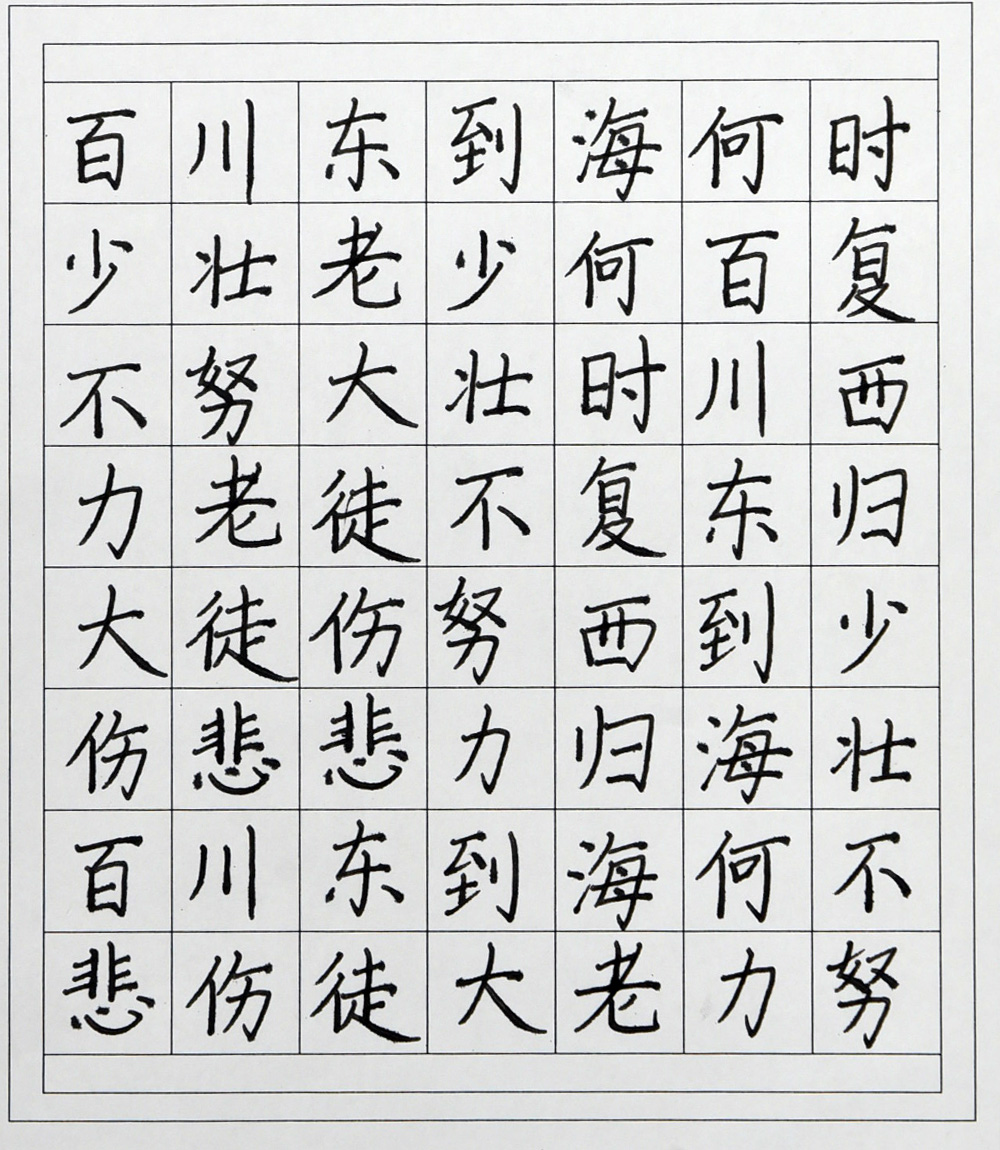 百川东到海何时
少壮老少何百复
不努大壮时川西
力老徒不复东归
大徒伤努西到少
伤悲悲力归海壮
百川东到海何不
悲伤徒大老力努